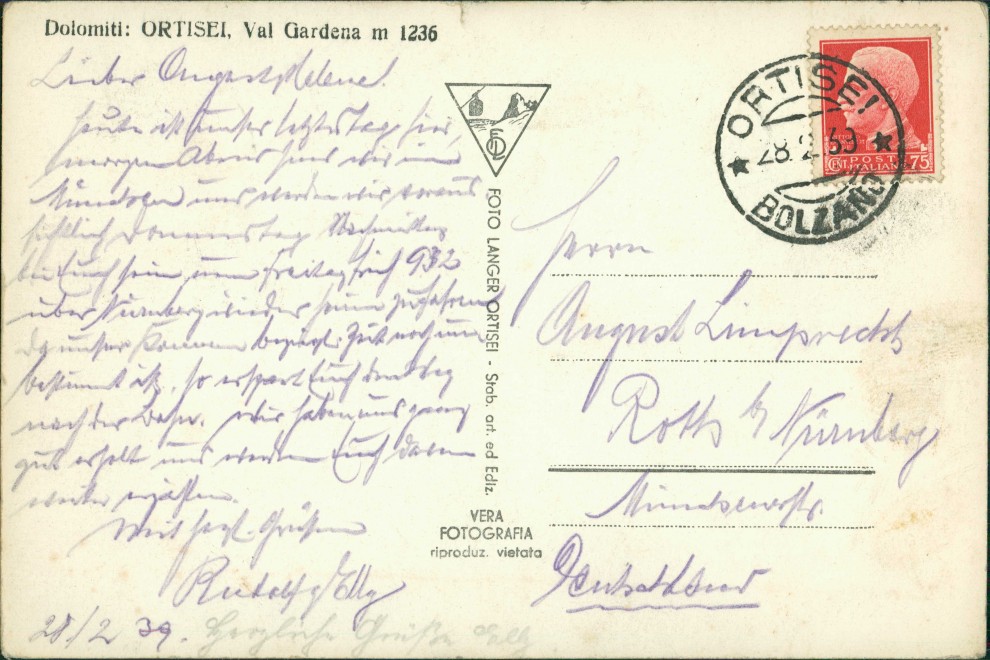 Dolomiti: ORTISEI, Val Gardena m 1236
Lieber August, Helene!
Heute ist unser letzter Tag hier,
morgen Abend sind wir in
München und werden wir voraus
sichtlich Donnerstag Nachmittag
bei Euch sein, um Freitag früh 9 32
über Nürnberg wieder heim zufahren
Da unser Kommen bezügl. Zeit noch un
bestimmt ist, so erspart Euch den Weg
nach der Bahn. Wir haben uns ganz
gut erholt und werden Euch davon
weiter erzählen.
Mit herzl. Grüßen
Rudolf & Elly
28/2 39. Herzliche Grüße Elly
FOTO LANGER ORTISEI - Stab. art. ed Ediz.
VERA
FOTOGRAFIA
riproduz. vietata
ORTISEI
28. 2. 39
BOLZANO
POSTE
ITALIANE
CENT 75
Herrn
August Limprecht
Roth b/ Nürnberg
Deutschland